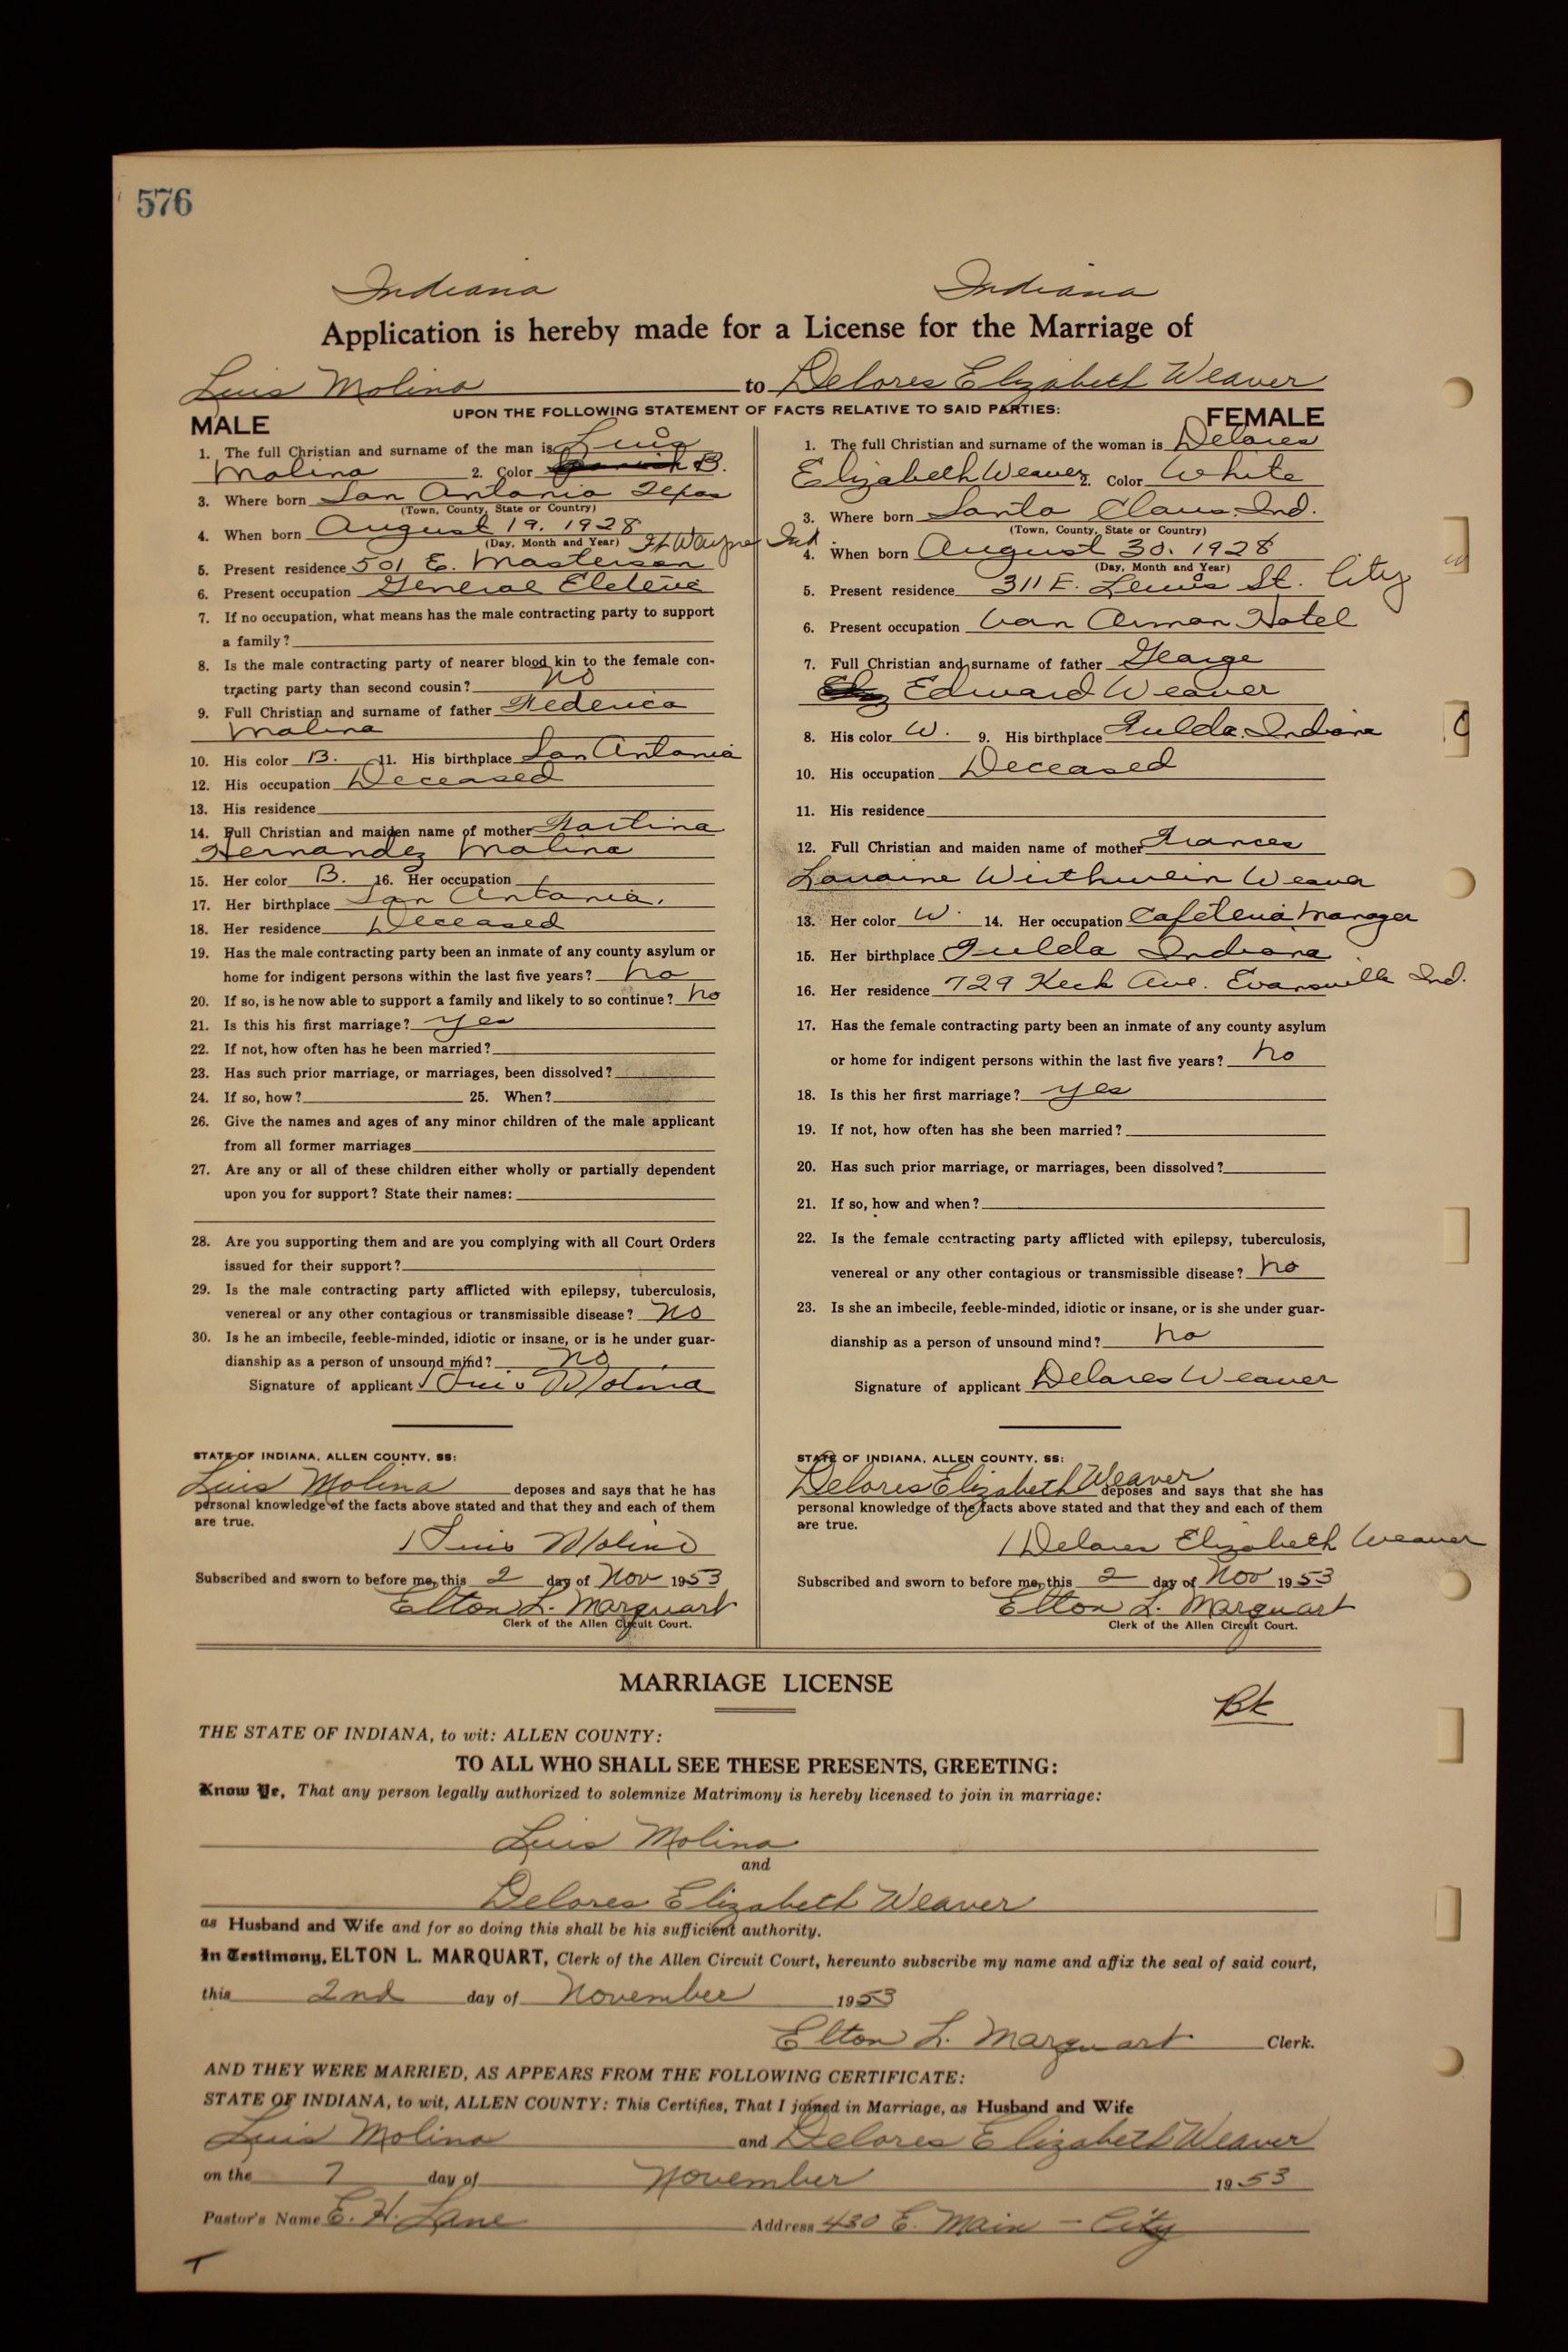 576
Indiana Indiana
Application is hereby made for a License for the Marriage of
Luis Molina to Delores Elizabeth Weaver
UPON THE FOLLOWING STATEMENT OF FACTS RELATIVE TO SAID PARTIES:
MALE
1. The full Christian and surname of the man is Luis
Molina 2. Color B.
3. Where born San Antonio Texas
(Town, County, State or Country)
4. When born August 19. 1928
(Day, Month and Year) Ft Wayne Ind
5. Present residence 501 E. Masterson
6. Present occupation General Eletric
7. If no occupation, what means has the male contracting party to support
a family?
8. Is the male contracting party of nearer blood kin to the female con-
tracting party than second cousin? no
9. Full Christian and surname of father Federico
Molina
10. His color B. 11. His birthplace San Antonio
12. His occupation Deceased
13. His residence
14. Full Christian and maiden name of mother
Hernandez Molina
15. Her color B. 16. Her occupation
17. Her birthplace San Antonio.
18. Her residence Deceased
19. Has the male contracting party been an inmate of any county asylum or
home for indigent persons within the last five years? no
20. If so, is he now able to support a family and likely to so continue? no
21. Is this his first marriage? yes
22. If not, how often has he been married?
23. Has such prior marriage, or marriages, been dissolved?
24. If so, how? 25. When?
26. Give the names and ages of any minor children of the male applicant
from all former marriages
27. Are any or all of these children either wholly or partially dependent
upon you for support? State their names:
28. Are you supporting them and are you complying with all Court Orders
issued for their support?
29. Is the male contracting party afflicted with epilepsy, tuberculosis,
venereal or any other contagious or transmissible disease? no
30. Is he an imbecile, feeble-minded, idiotic or insane, or is he under guar-
dianship as a person of unsound mind? no
Signature of applicant Luis Molina
STATE OF INDIANA, ALLEN COUNTY, SS:
Luis Molina deposes and says that he has
personal knowledge of the facts above stated and that they and each of them
are true.
Luis Molina
Subscribed and sworn to before me, this 2 day of Nov 1953
Elton L. Marquart
Clerk of the Allen Circuit Court.
FEMALE
1. The full Christian and surname of the woman is Delores
Elizabeth Weaver 2. Color White
3. Where born Santa Claus. Ind.
(Town, County, State or Country)
4. When born August 30. 1928
(Day, Month and Year)
5. Present residence 311 E. Lewis St. City
6. Present occupation Van Arman Hotel
7. Full Christian and surname of father George
Edward Weaver
8. His color W. 9. His birthplace Fulda. Indiana
10. His occupation Deceased
11. His residence
12. Full Christian and maiden name of mother Frances
Lorraine Weaver
13. Her color W. 14. Her occupation Cafeteria Manager
15. Her birthplace Fulda Indiana
16. Her residence 729 Keck Ave. Evansville Ind.
17. Has the female contracting party been an inmate of any county asylum
or home for indigent persons within the last five years? no
18. Is this her first marriage? yes
19. If not, how often has she been married?
20. Has such prior marriage, or marriages, been dissolved?
21. If so, how and when?
22. Is the female contracting party afflicted with epilepsy, tuberculosis,
venereal or any other contagious or transmissible disease? no
23. Is she an imbecile, feeble-minded, idiotic or insane, or is she under guar-
dianship as a person of unsound mind? no
Signature of applicant Delores Weaver
STATE OF INDIANA, ALLEN COUNTY, SS:
Delores Elizabeth Weaver deposes and says that she has
personal knowledge of the facts above stated and that they and each of them
are true.
Delores Elizabeth Weaver
Subscribed and sworn to before me, this 2 day of Nov 1953
Elton L. Marquart
Clerk of the Allen Circuit Court.
MARRIAGE LICENSE
THE STATE OF INDIANA, to wit: ALLEN COUNTY:
TO ALL WHO SHALL SEE THESE PRESENTS, GREETING:
Know Ye, That any person legally authorized to solemnize Matrimony is hereby licensed to join in marriage:
Luis Molina
and
Delores Elizabeth Weaver
as Husband and Wife and for so doing this shall be his sufficient authority.
In Testimony, ELTON L. MARQUART, Clerk of the Allen Circuit Court, hereunto subscribe my name and affix the seal of said court,
this 2nd day of November 1953
Elton L. Marquart Clerk.
AND THEY WERE MARRIED, AS APPEARS FROM THE FOLLOWING CERTIFICATE:
STATE OF INDIANA, to wit, ALLEN COUNTY: This Certifies, That I joined in Marriage, as Husband and Wife
Luis Molina and Delores Elizabeth Weaver
on the 7 day of November 1953
Pastor's Name E. H. Lane Address 430 E. Main - City
T